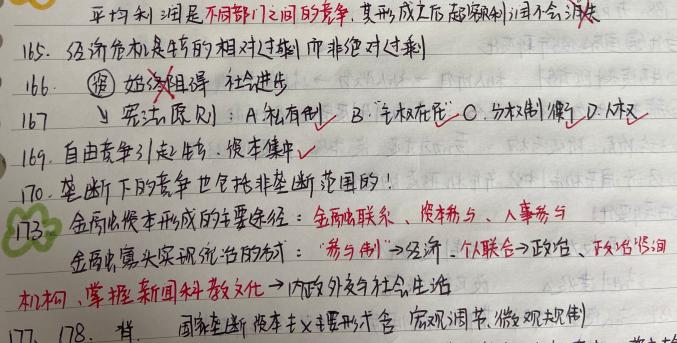 平均利润是不同部门之间的竞争,其形成之后超额利润不会消失
165. 经济危机是生产的相对过剩而非绝对过剩
166. 资 始终阻碍 社会进步
167 ↘ 宪法原则:A.私有制 B."主权在民" C.分权制衡 D.人权
169. 自由竞争引起生产、资本集中
170. 垄断下的竞争也包括非垄断范围的!
173. 金融资本形成的主要途径:金融联系、资本参与、人事参与
金融寡头实现统治的方式:"参与制"→经济、个人联合→政治、政治咨询
机构、掌握新闻科教文化→内政外交与社会生活
177、178、 国家垄断资本主义主要形式含 宏观调节、微观规制